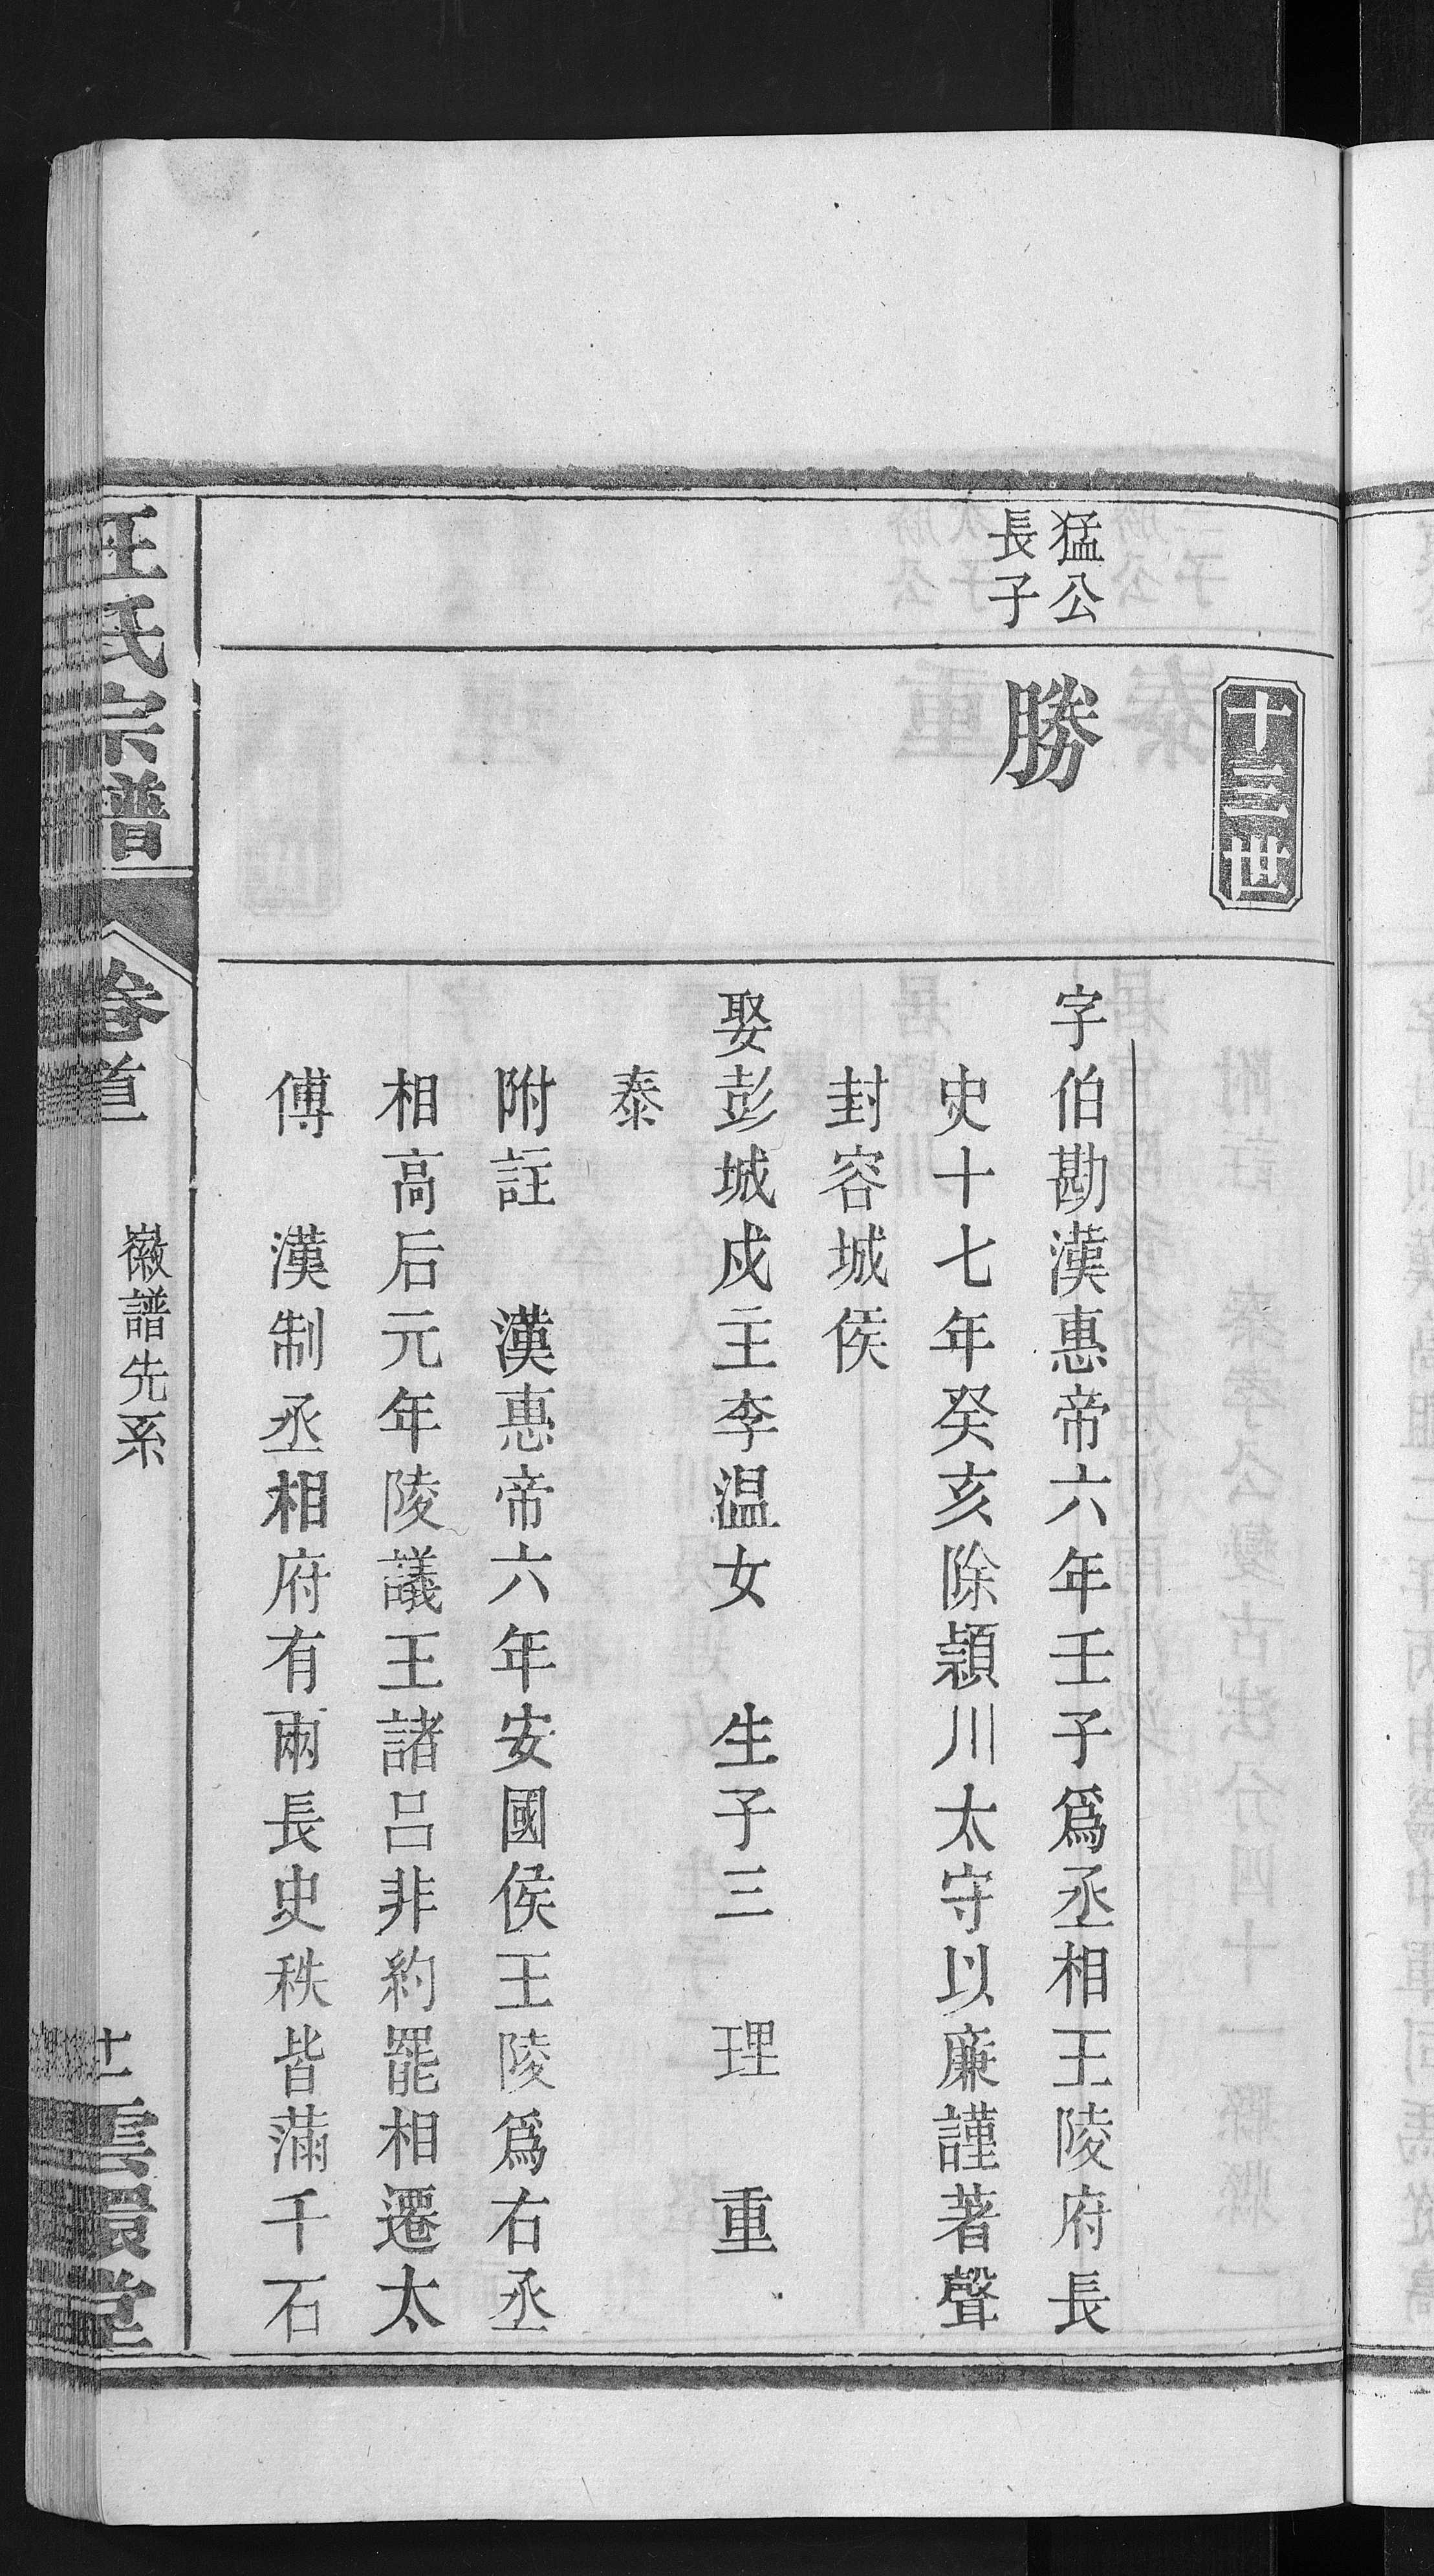 十三世
猛公
長子
勝
字伯勘漢惠帝六年壬子爲丞相王陵府長
史十七年癸亥除潁川太守以廉謹著聲
封容城侯
娶彭城戍主李温女　生子三　理　重
泰
附註　漢惠帝六年安國侯王陵爲右丞
相高后元年陵議王諸吕非約罷相遷太
傅　漢制丞相府有兩長史秩皆滿千石
汪氏宗譜
卷首
徽譜先系